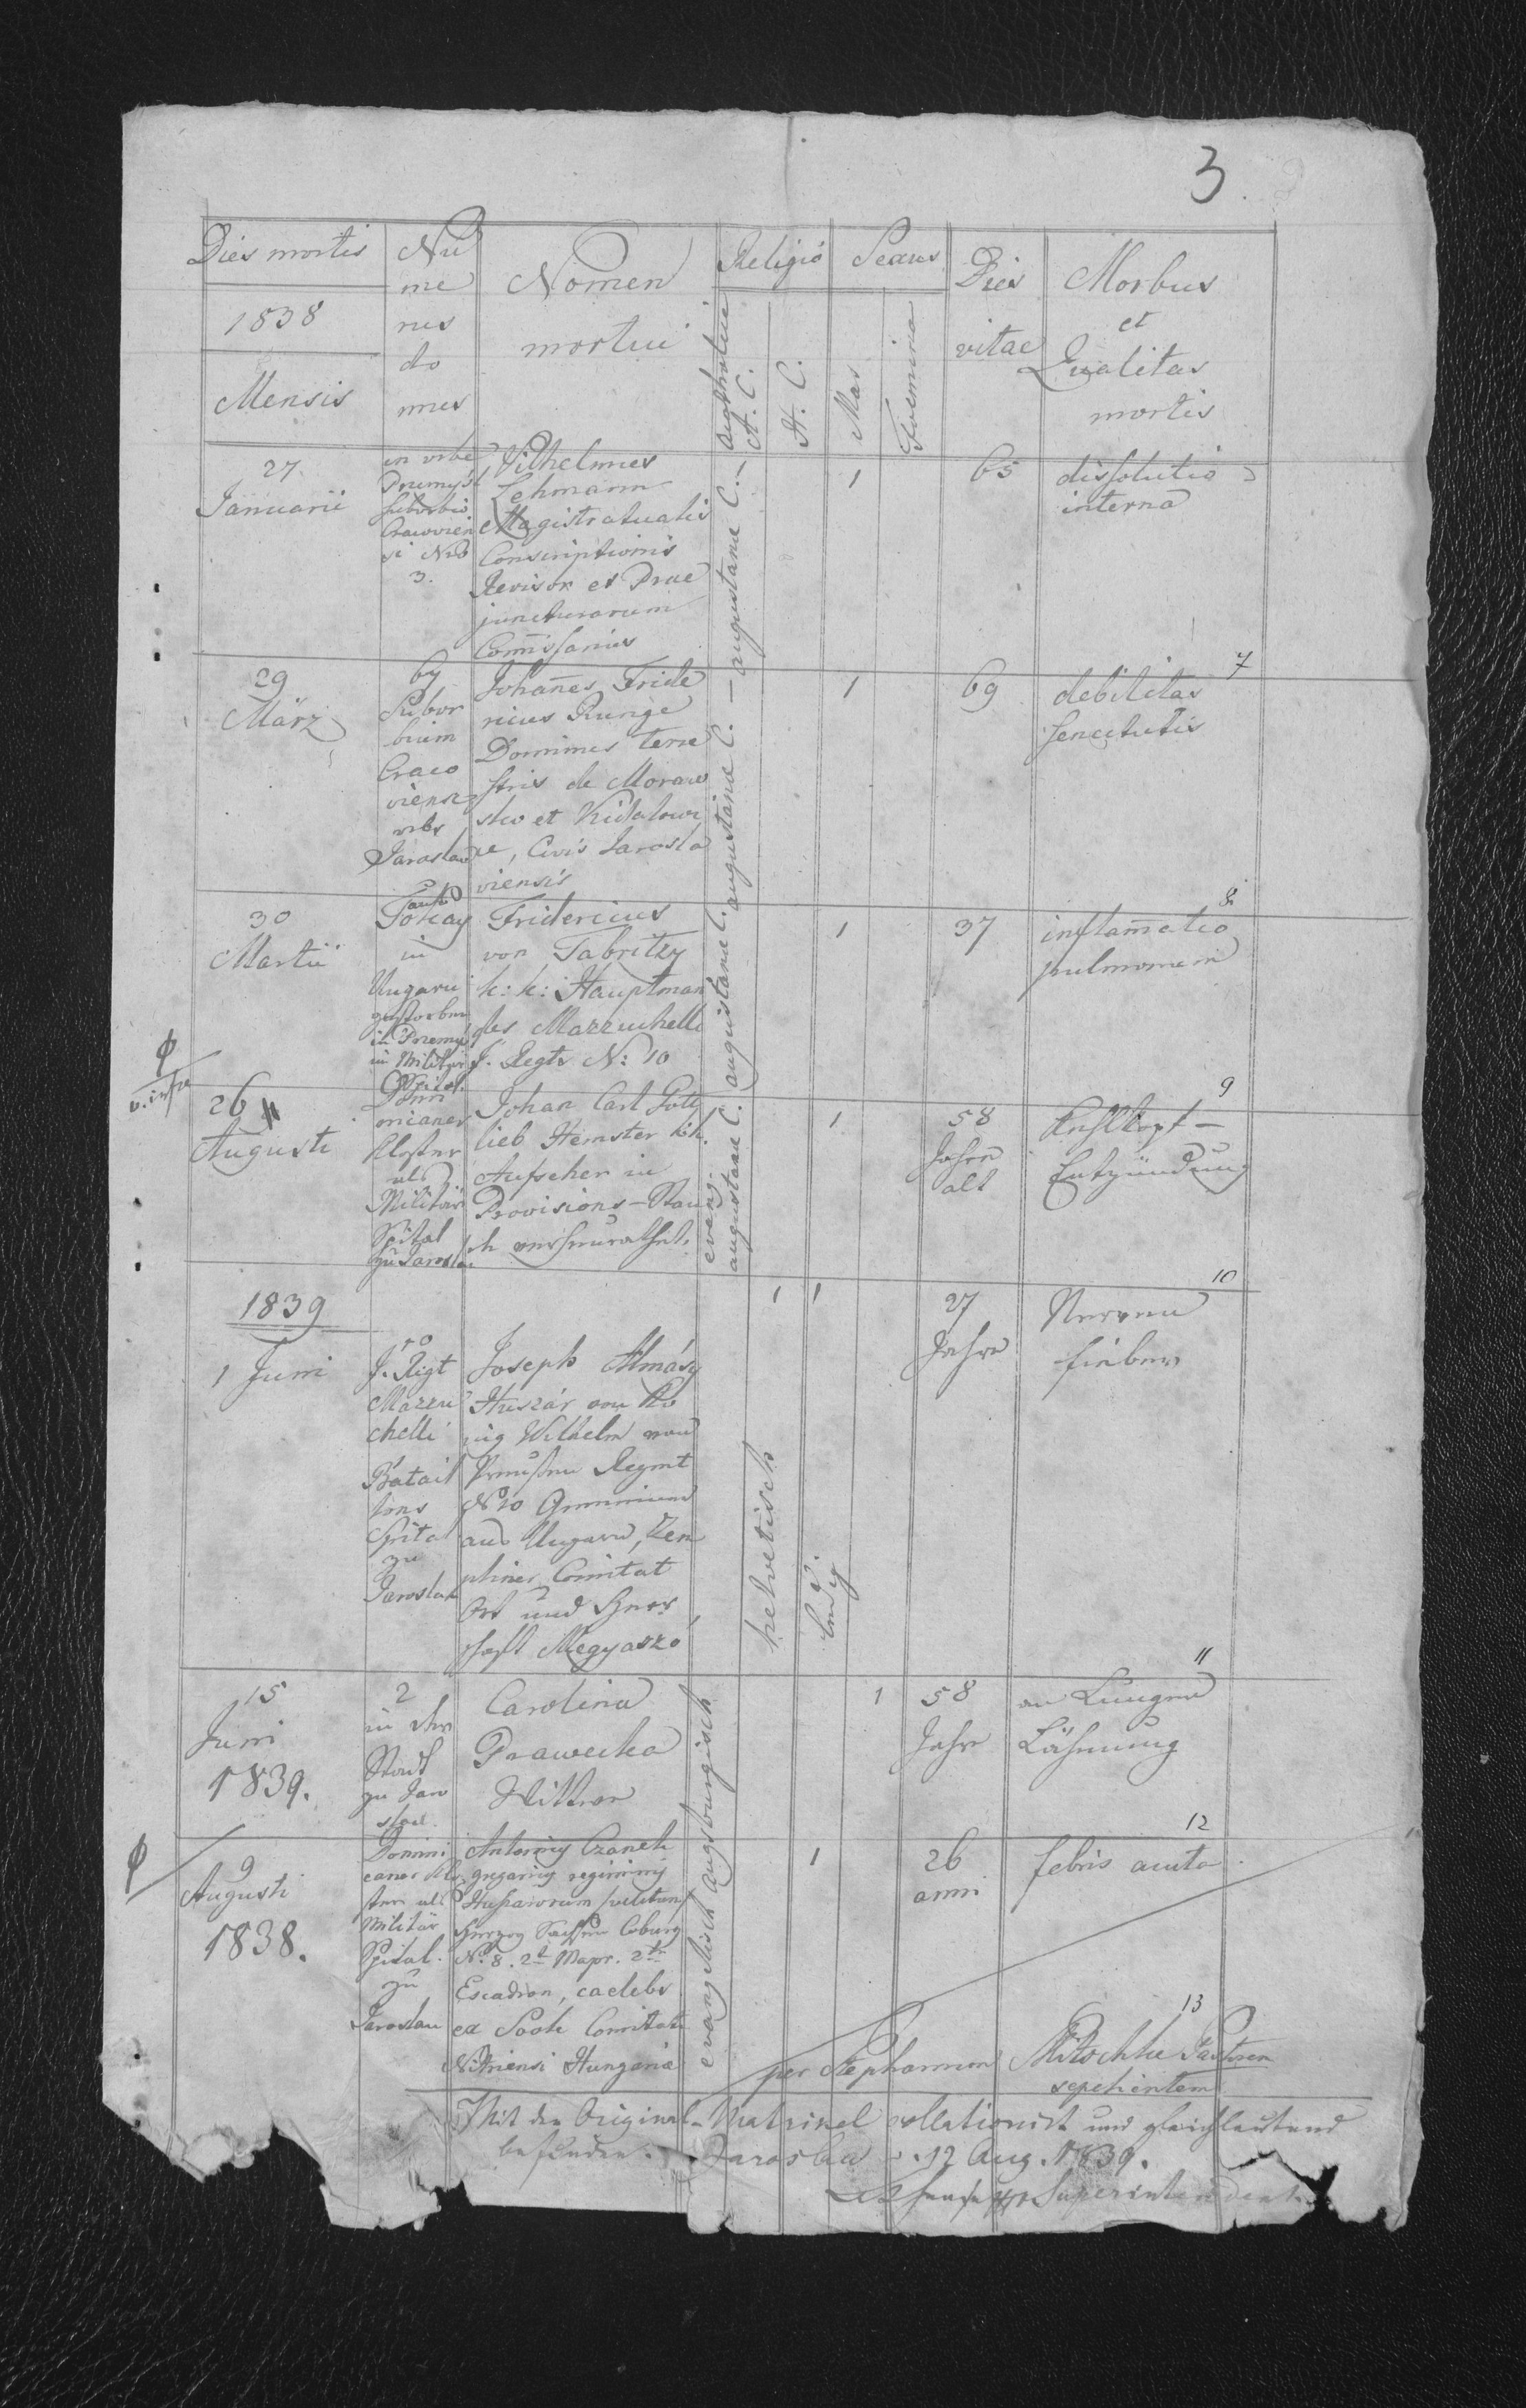 3.
Dies mortis
1838
Mensis
Nu
me
rus
do
mus
Nomen
mortui
Religio
A. C.
H. C.
Sexus
Mas
Foemina
Dies
vitae
Morbus
et
Qualitas
mortis
27.
Januarii
in urbe
Przemyśl
suborbio
Cracovien
si Nro
3.
Vilhelmus
Lehmann
Magistratualis
Conscriptionis
Revisor et Prae
juncturarum
Commissarius
augustanae C.
1
65
dissolutio
interna
29
März
Subor
bium
Craco
viense
urbs
Jaroslav
Johannes Fride
ricus Runge
Dominus terre
stris de Moraw
sko et Kidalowi
ce, Civis Jarosla
viensis
augustanae C.
1
69
7
debilitas
senectutis
30
Martii
Tokay
in
Ungarn
gestorben
in Przemyśl
im Militär
Spital.
Fridericus
von Fabritzy
k: k: Hauptman
des Mazzuchelli
J. Regts N: 10
augustanae C.
1
37
8
inflammatio
pulmonum
φ
v. infra
26
Augusti
Domi
nicaner
Kloster
als
Militär
Spital
zu Jaroslau
Johan Carl Gott
lieb Hemster k.k.
Aufseher in
Provisions-Stan
de verheurathet.
evang.
augustanae C.
1
58
Jahre
alt
9
Kehlkopf-
Entzündung
1839
1 Juni
10
J. Rgt
Mazzu
chelli
Batail
lons
Spital
zu
Jaroslau
Joseph Almásy
Huszár von Kö
nig Wilhelm von
Preußen Regmt
No 10 Gemeiner
aus Ungarn, Zem
pliner Comitat
Ort und Herr
schaft Megyaszó
helvetisch
1
1
ledig
27
Jahre
10
Nerven
fieber
15
Juni
1839.
2
in der
Stadt
zu Jaro
slau
Carolina
Prawecka
Wittwe
evangelisch augsburgisch
1
58
Jahre
11
an Lungen
Lähmung
φ
9
Augusti
1838.
Domini
caner Klo
ster als
Militär
Spital.
zu
Jaroslau
Antonius Czanek
gregarius regiminis
Hussarorum
Herzog Sachsen Coburg
No. 8. 2t Majr. 2te
Escadron, caelebs
ex Comitatu
Nitriensi Hungariae
1
26
anni
12
febris acuta
13
per Stephanum Mitschke Pastorem
sepelientem
Mit der Original-Matrikel collationirt und gleichlautend
befunden. Jaroslau d. 12 Aug. 1839.
Superintendent